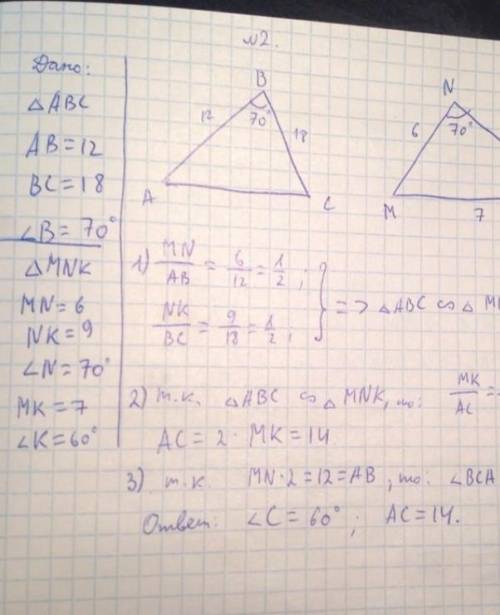 №2.
Дано:
△ABC
AB=12
BC=18
∠B=70°
△MNK
MN=6
NK=9
∠N=70°
MK=7
∠K=60°
B
12
70°
18
A
C
N
6
70°
M
7
1) MN/AB = 6/12 = 1/2 ;
NK/BC = 9/18 = 1/2 ;
} => △ABC ∽ △M
2) т.к. △ABC ∽ △MNK, то: MK/AC =
AC = 2 · MK = 14
3) т.к. MN·2=12=AB, то: ∠BCA
Ответ: ∠C=60° ; AC=14.